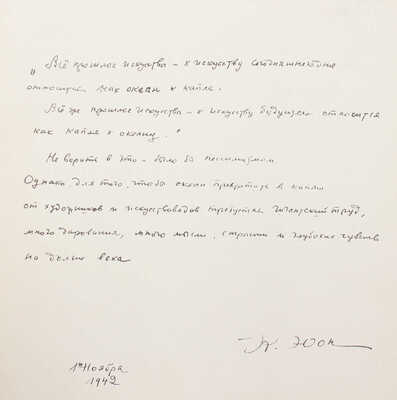 „Всё прошлое искусства – к искусству сегодняшнего дня
относится как океан к капле.
Всё же прошлое искусства – к искусству будущего относится
как капля к океану."
Не верить в это – было бы пессимизмом.
Однако, для того, чтобы океан превратился в каплю
от художников и искусствоведов требуется гигантский труд,
много дарования, много мысли, страсти и глубоких чувств
на долгие века
К. Юон
1го Ноября
1942